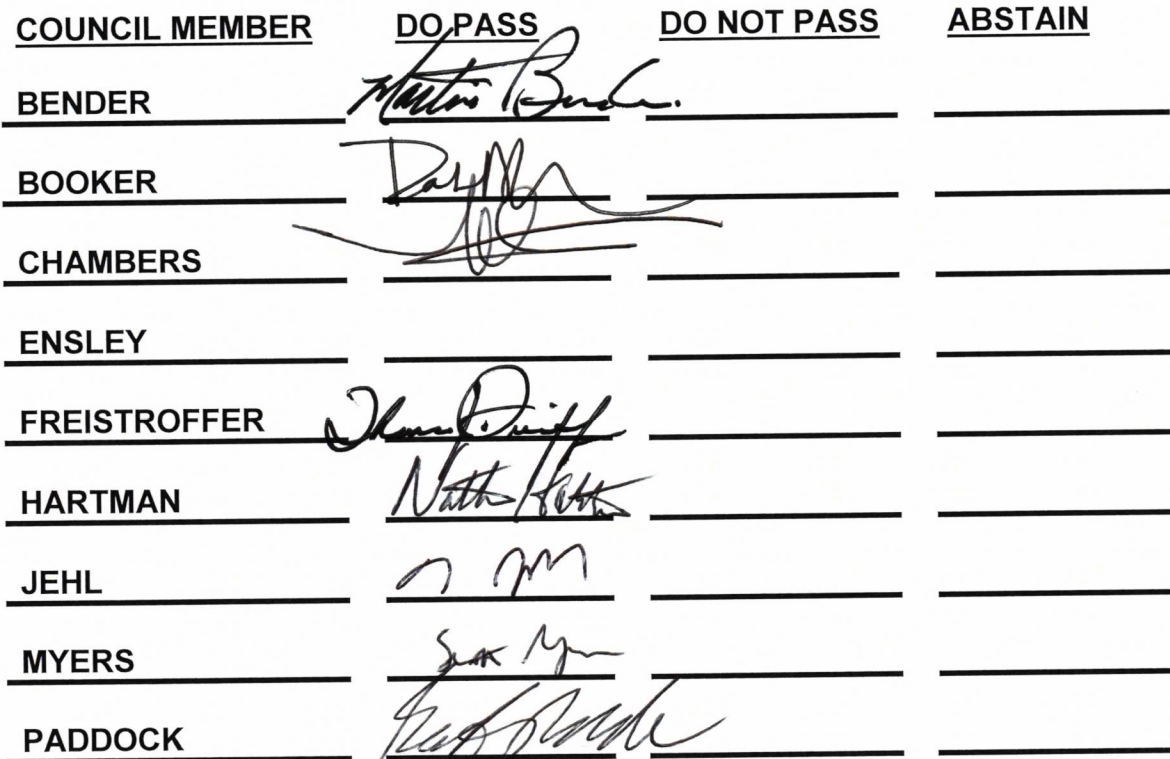 COUNCIL MEMBER DO PASS DO NOT PASS ABSTAIN
BENDER Martin Bender
BOOKER
CHAMBERS
ENSLEY
FREISTROFFER
HARTMAN Nathan Hartman
JEHL
MYERS
PADDOCK